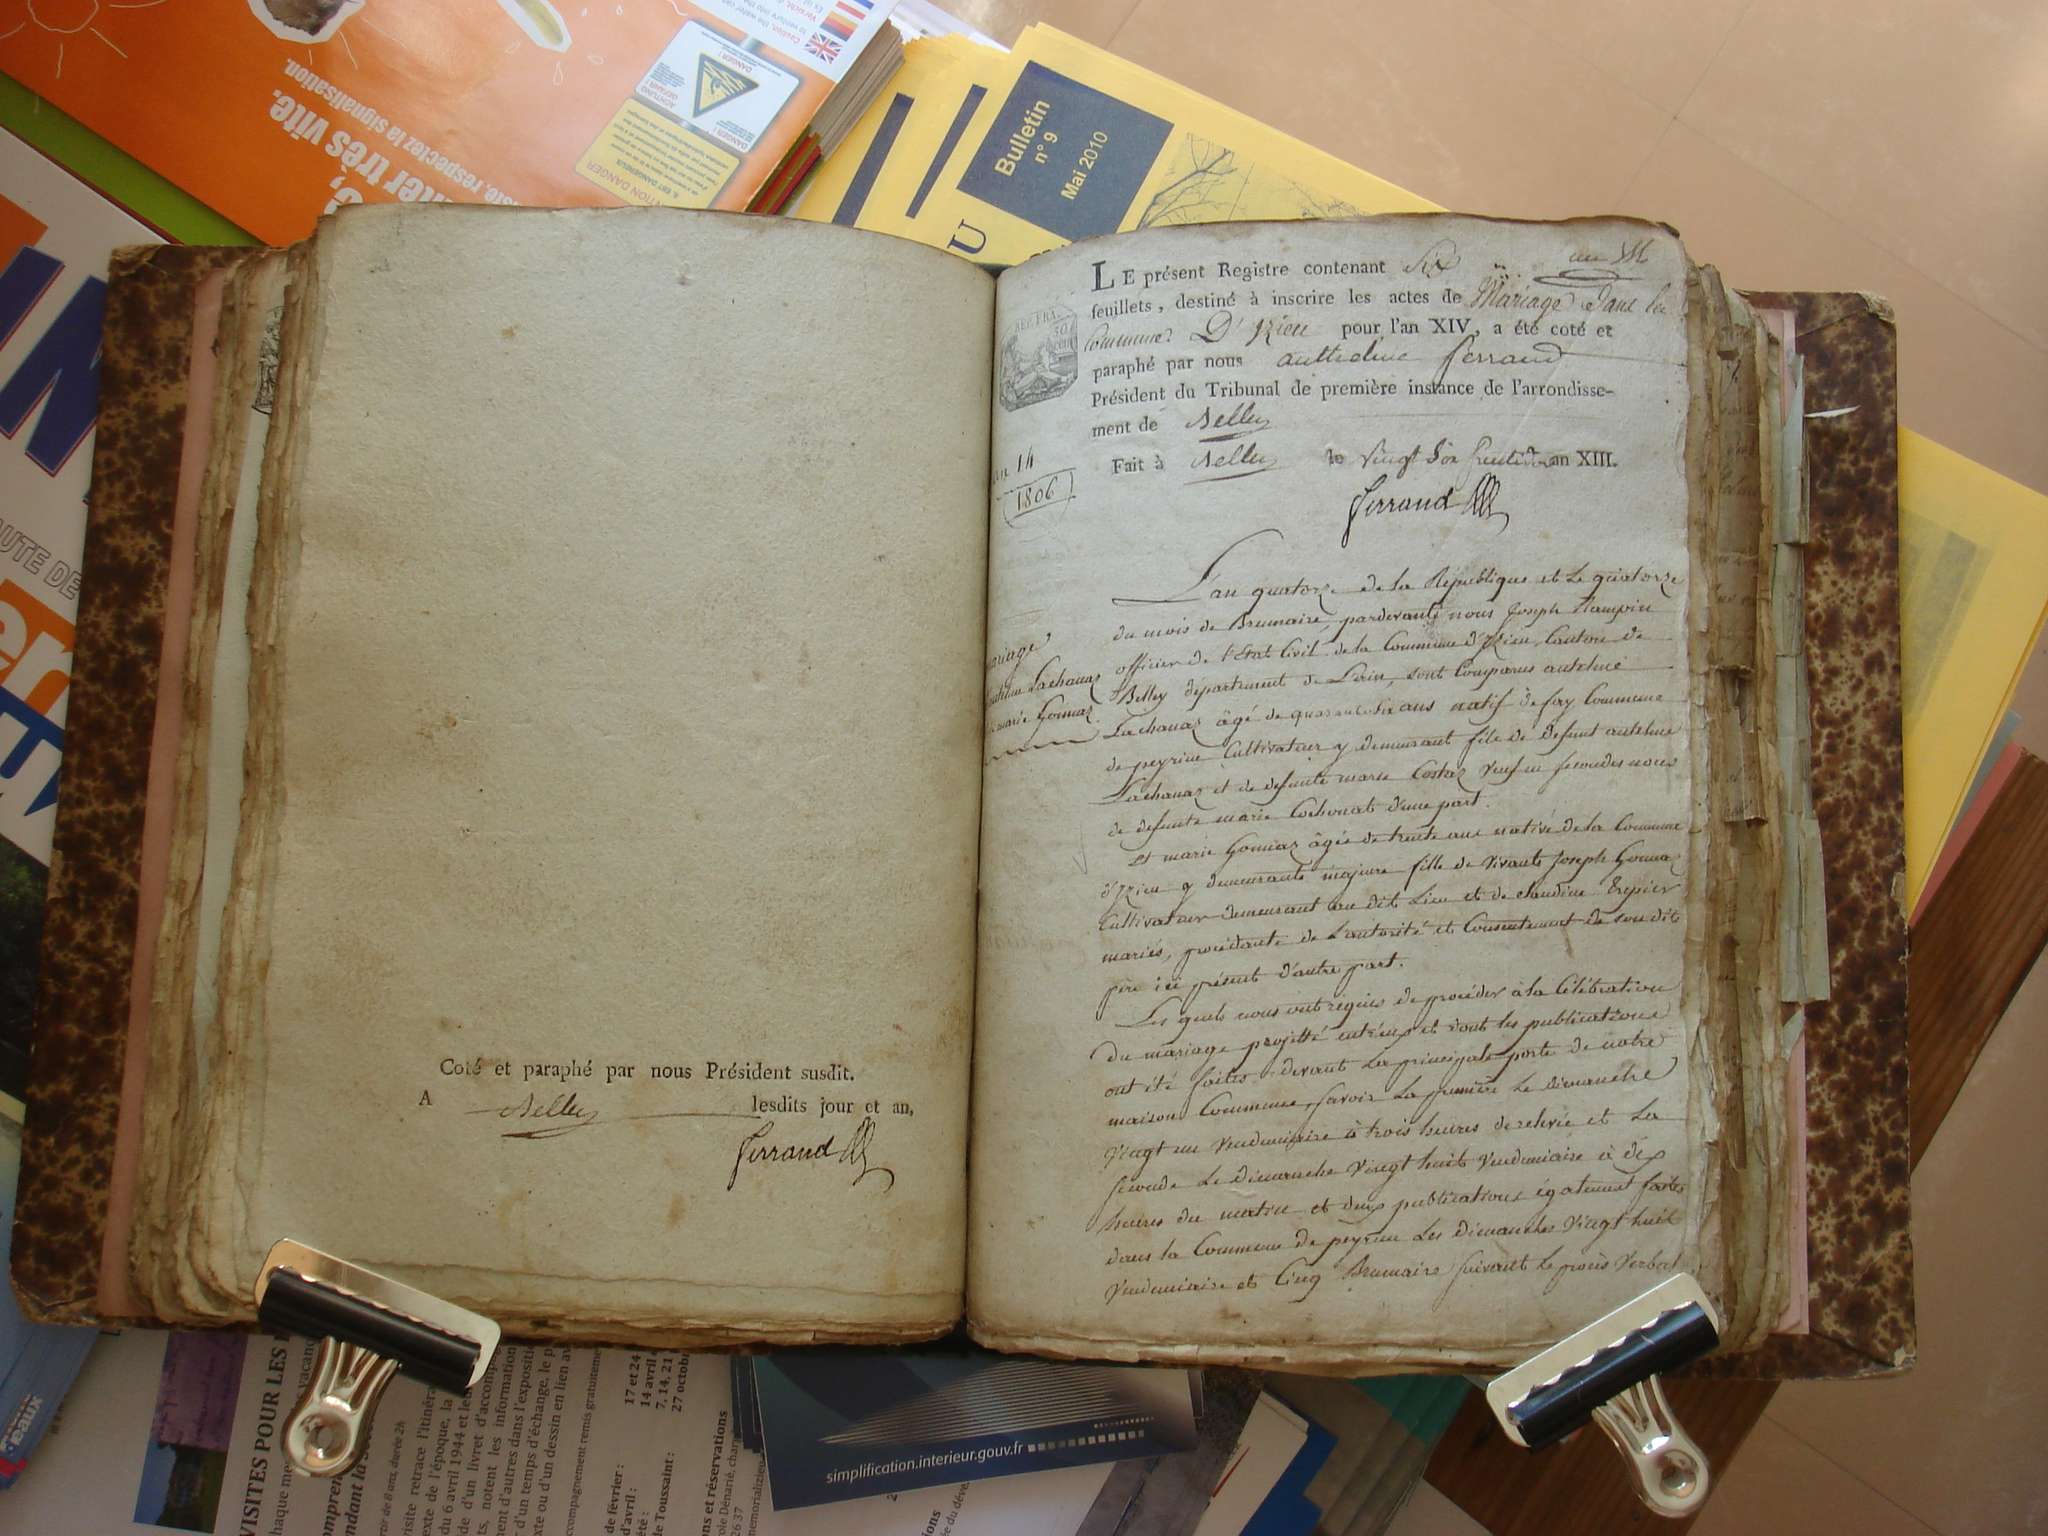 Bulletin
n° 9
Mai 2010
U
nter très vite.
respectez la signalisation.
DANGER !
ACHTUNG
GEFAHR !
DANGER
TION DANGER
AUTE DE
Coté et paraphé par nous Président susdit.
A Belley lesdits jour et an,
Ferrand
an XIV
LE présent Registre contenant Six
feuillets, destiné à inscrire les actes de Mariage dans la
Commune D'Izieu pour l'an XIV, a été coté et
paraphé par nous anthelme ferrand
Président du Tribunal de première instance de l'arrondisse-
ment de Belley
Fait à Belley le vingt Six fructidor an XIII.
Ferrand
REP. FRA.
an 14
1806
ariage
Lachanaz
marie Gonnaz
L'an quatorze de la République et le quatorze
du mois de Brumaire, pardevant nous Joseph
officier de l'Etat Civil de la Commune d'Izieu, Canton de
Belley département de L'ain, sont Comparus antelme
Lachanaz âgé de quarante six ans natif de fay Commune
de peyrieu Cultivateur y demeurant fils de defunt antelme
Lachanaz et de defunte marie Costaz Veuf en secondes noces
de defunte marie Cochonat d'une part.
Et marie Gonnaz âgée de trente ans native de la Commune
d'Izieu y demeurante majeure fille de vivants Joseph Gonnaz
Cultivateur demeurant au dit Lieu et de claudine Trepier
mariés, procédante de L'autorité et Consentement de son dit
père ici présent d'autre part.
Les quels nous ont requis de procéder à la Célébration
du mariage projetté entr'eux et dont les publications
ont été faites devant la principale porte de notre
maison Commune, savoir La première Le dimanche
vingt un vendemiaire à trois heures de relevée et La
seconde Le dimanche vingt huit vendemiaire à dix
heures du matin et deux publications également faites
dans la Commune de peyrieu Les dimanches vingt huit
vendemiaire et Cinq Brumaire suivant Le procès verbal
VISITES POUR LES
6 avril 1944
17 et 24
14 avril
7, 14, 21
27 octob
de février :
d'avril :
été :
de Toussaint :
ons et réservations
simplification.interieur.gouv.fr